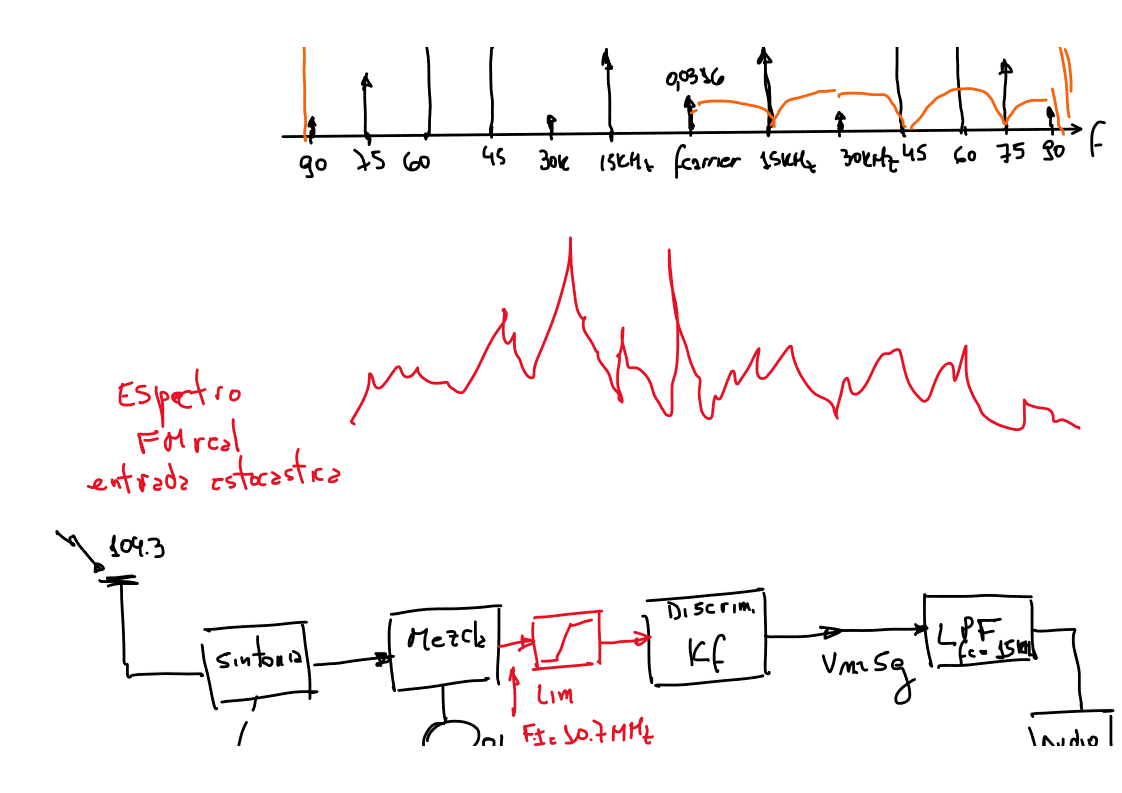 0,0316
90 75 60 45 30K 15KHz fcarrier 15KHz 30KHz 45 60 75 90 f
ESpectro
FM real
entrada estocastica
104.3
Sintonia
Mezcla
Lim
FI= 10.7MHz
Discrim.
Kf
Vmsg
LPF
fc= 15KHz
Audio